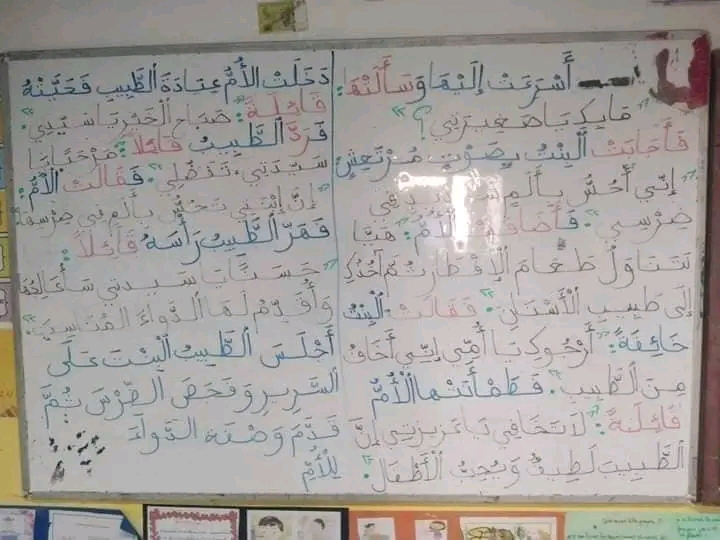 أَسْرَعَتْ إِلَيْهَا وَسَأَلَتْهَا:
"مَا بِكِ يَا صَغِيرَتِي؟"
فَأَجَابَتْ الْبِنْتُ بِصَوْتٍ مُرْتَعِشٍ:
"إِنِّي أُحُسُّ بِأَلَمٍ فِي
ضِرْسِي". فَأَضَافَتْ الْأُمُّ: هَيَّا
نَتَنَاوَلُ طَعَامَ الْإِفْطَارِ ثُمَّ آخُذُكِ
إِلَى طَبِيبِ الْأَسْنَانِ". فَقَالَتْ الْبِنْتُ
خَائِفَةً: "أَرْجُوكِ يَا أُمِّي إِنِّي أَخَافُ
مِنَ الطَّبِيبِ". فَطَمْأَنَتْهَا الْأُمُّ
قَائِلَةً: "لَا تَخَافِي يَا عَزِيزَتِي إِنَّ
الطَّبِيبَ لَطِيفٌ وَيُحِبُّ الْأَطْفَالَ".
دَخَلَتْ الْأُمُّ عِيَادَةَ الطَّبِيبِ فَحَيَّتْهُ
قَائِلَةً: "صَبَاحَ الْخَيْرِ يَا سَيِّدِي".
فَرَدَّ الطَّبِيبُ قَائِلًا: "مَرْحَبًا يَا
سَيِّدَتِي، تَفَضَّلِي". فَقَالَتْ الْأُمُّ:
"إِنَّ ابْنَتِي تَحُسُّ بِأَلَمٍ فِي ضِرْسِهَا"
فَهَزَّ الطَّبِيبُ رَأْسَهُ قَائِلًا:
"حَسَنًا يَا سَيِّدَتِي سَأُعَالِجُهَا
وَأُقَدِّمُ لَهَا الدَّوَاءَ الْمُنَاسِبَ".
أَجْلَسَ الطَّبِيبُ الْبِنْتَ عَلَى
السَّرِيرِ وَفَحَصَ الضِّرْسَ ثُمَّ
قَدَّمَ وَصْفَةَ الدَّوَاءِ
لِلْأُمِّ